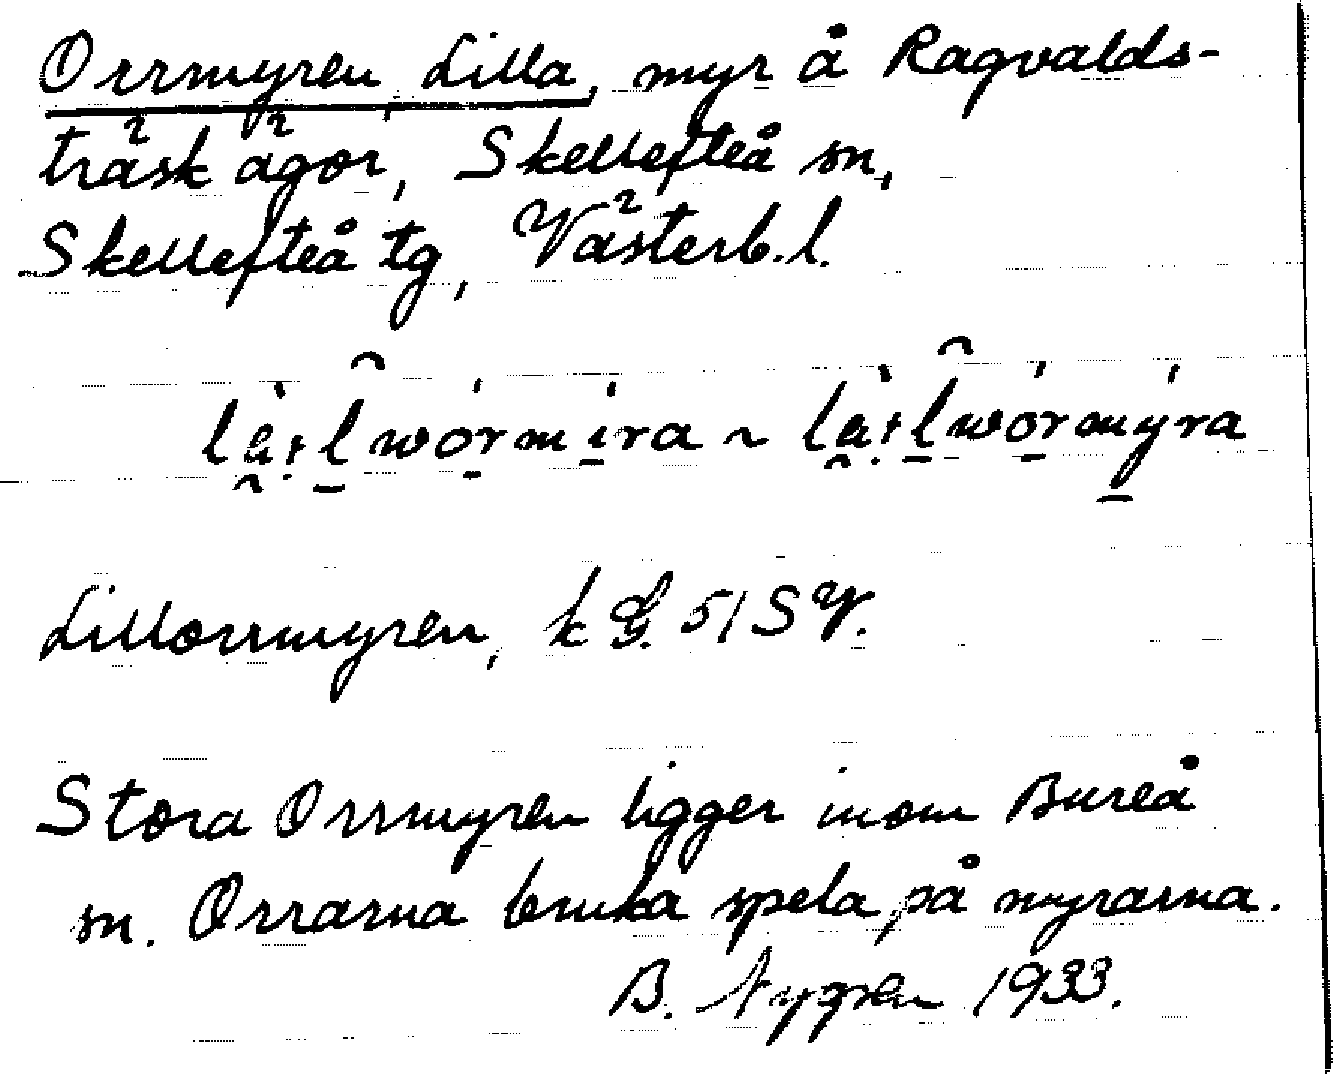 Orrmyren, Lilla, myr å Ragvalds-
träsk ägor, Skellefteå sn,
Skellefteå tg, Västerb. l.
Lillorrmyren, k G. 51 SV.
Stora Orrmyren ligger inom Bureå
sn. Orrarna bruka spela på myrarna.
B. Nygren 1933.